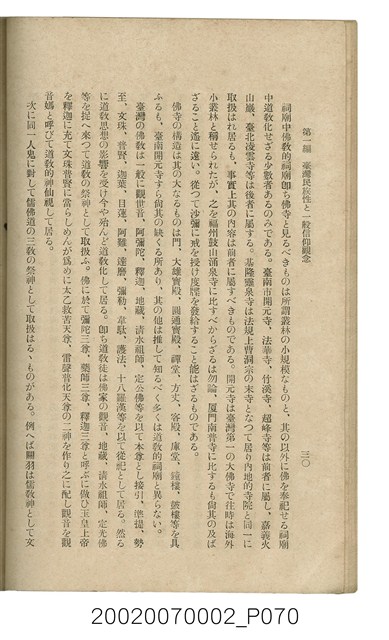 第一編　臺灣民族性と一般信仰觀念
三〇
祠廟中佛敎的祠廟卽ち佛寺と見るべきものは所謂叢林の小規模なものと、其の以外に佛を奉祀せる祠廟
中道敎化せざる少數者あるのみである。臺南市開元寺、法華寺、竹溪寺、超峰寺等は前者に屬し、嘉義火
山巖、臺北凌雲寺等は後者に屬する。基隆靈泉寺は法規上曹洞宗の末寺となつて居り內地的寺院と同一に
取扱はれ居るも、事實上其の內容は前者に屬すべきものである。開元寺は臺灣第一の大佛寺で往時は海外
小叢林と稱せられたが、之を福州鼓山湧泉寺に比すべからざるは勿論、厦門南普寺に比するも尙其の及ば
ざること遙に遠い。從つて沙彌に戒を授け度牒を發給すること能はざるものである。
佛寺の構造は其の大なるものは門、大雄寶殿、圓通寶殿、禪堂、方丈、客殿、庫堂、鐘樓、鼓樓等を具
ふるも、臺南開元寺すら尙其の缺くる所あり、其の他は推して知るべく多くは道敎的祠廟と異らない。
臺灣の佛敎は一般に觀世音、阿彌陀、釋迦、地藏、淸水祖師、定公佛等を以て本尊とし接引、準提、勢
至、文殊、普賢、迦葉、目蓮、阿難、達磨、彌勒、韋馱、護法、十八羅漢等を以て從祀として居る。然る
に道敎思想の影響を受け今や殆んど道敎化して居る。卽ち道敎徒は佛家の觀音、地藏、淸水祖師、定光佛
等を捉へ來つて道敎の祭神として取扱ふ。佛に於て彌陀三尊、藥師三尊、釋迦三尊と呼ぶに倣ひ玉皇上帝
を釋迦に充て文殊普賢に當らしめんが爲めに太乙救苦天尊、雷聲普化天尊の二神を作り之に配し觀音を觀
音媽と呼びて道敎的神仙視して居る。
次に同一人鬼に對して儒佛道の三敎の祭神として取扱はるゝものがある。例へば關羽は儒敎神として文
20020070002_P070